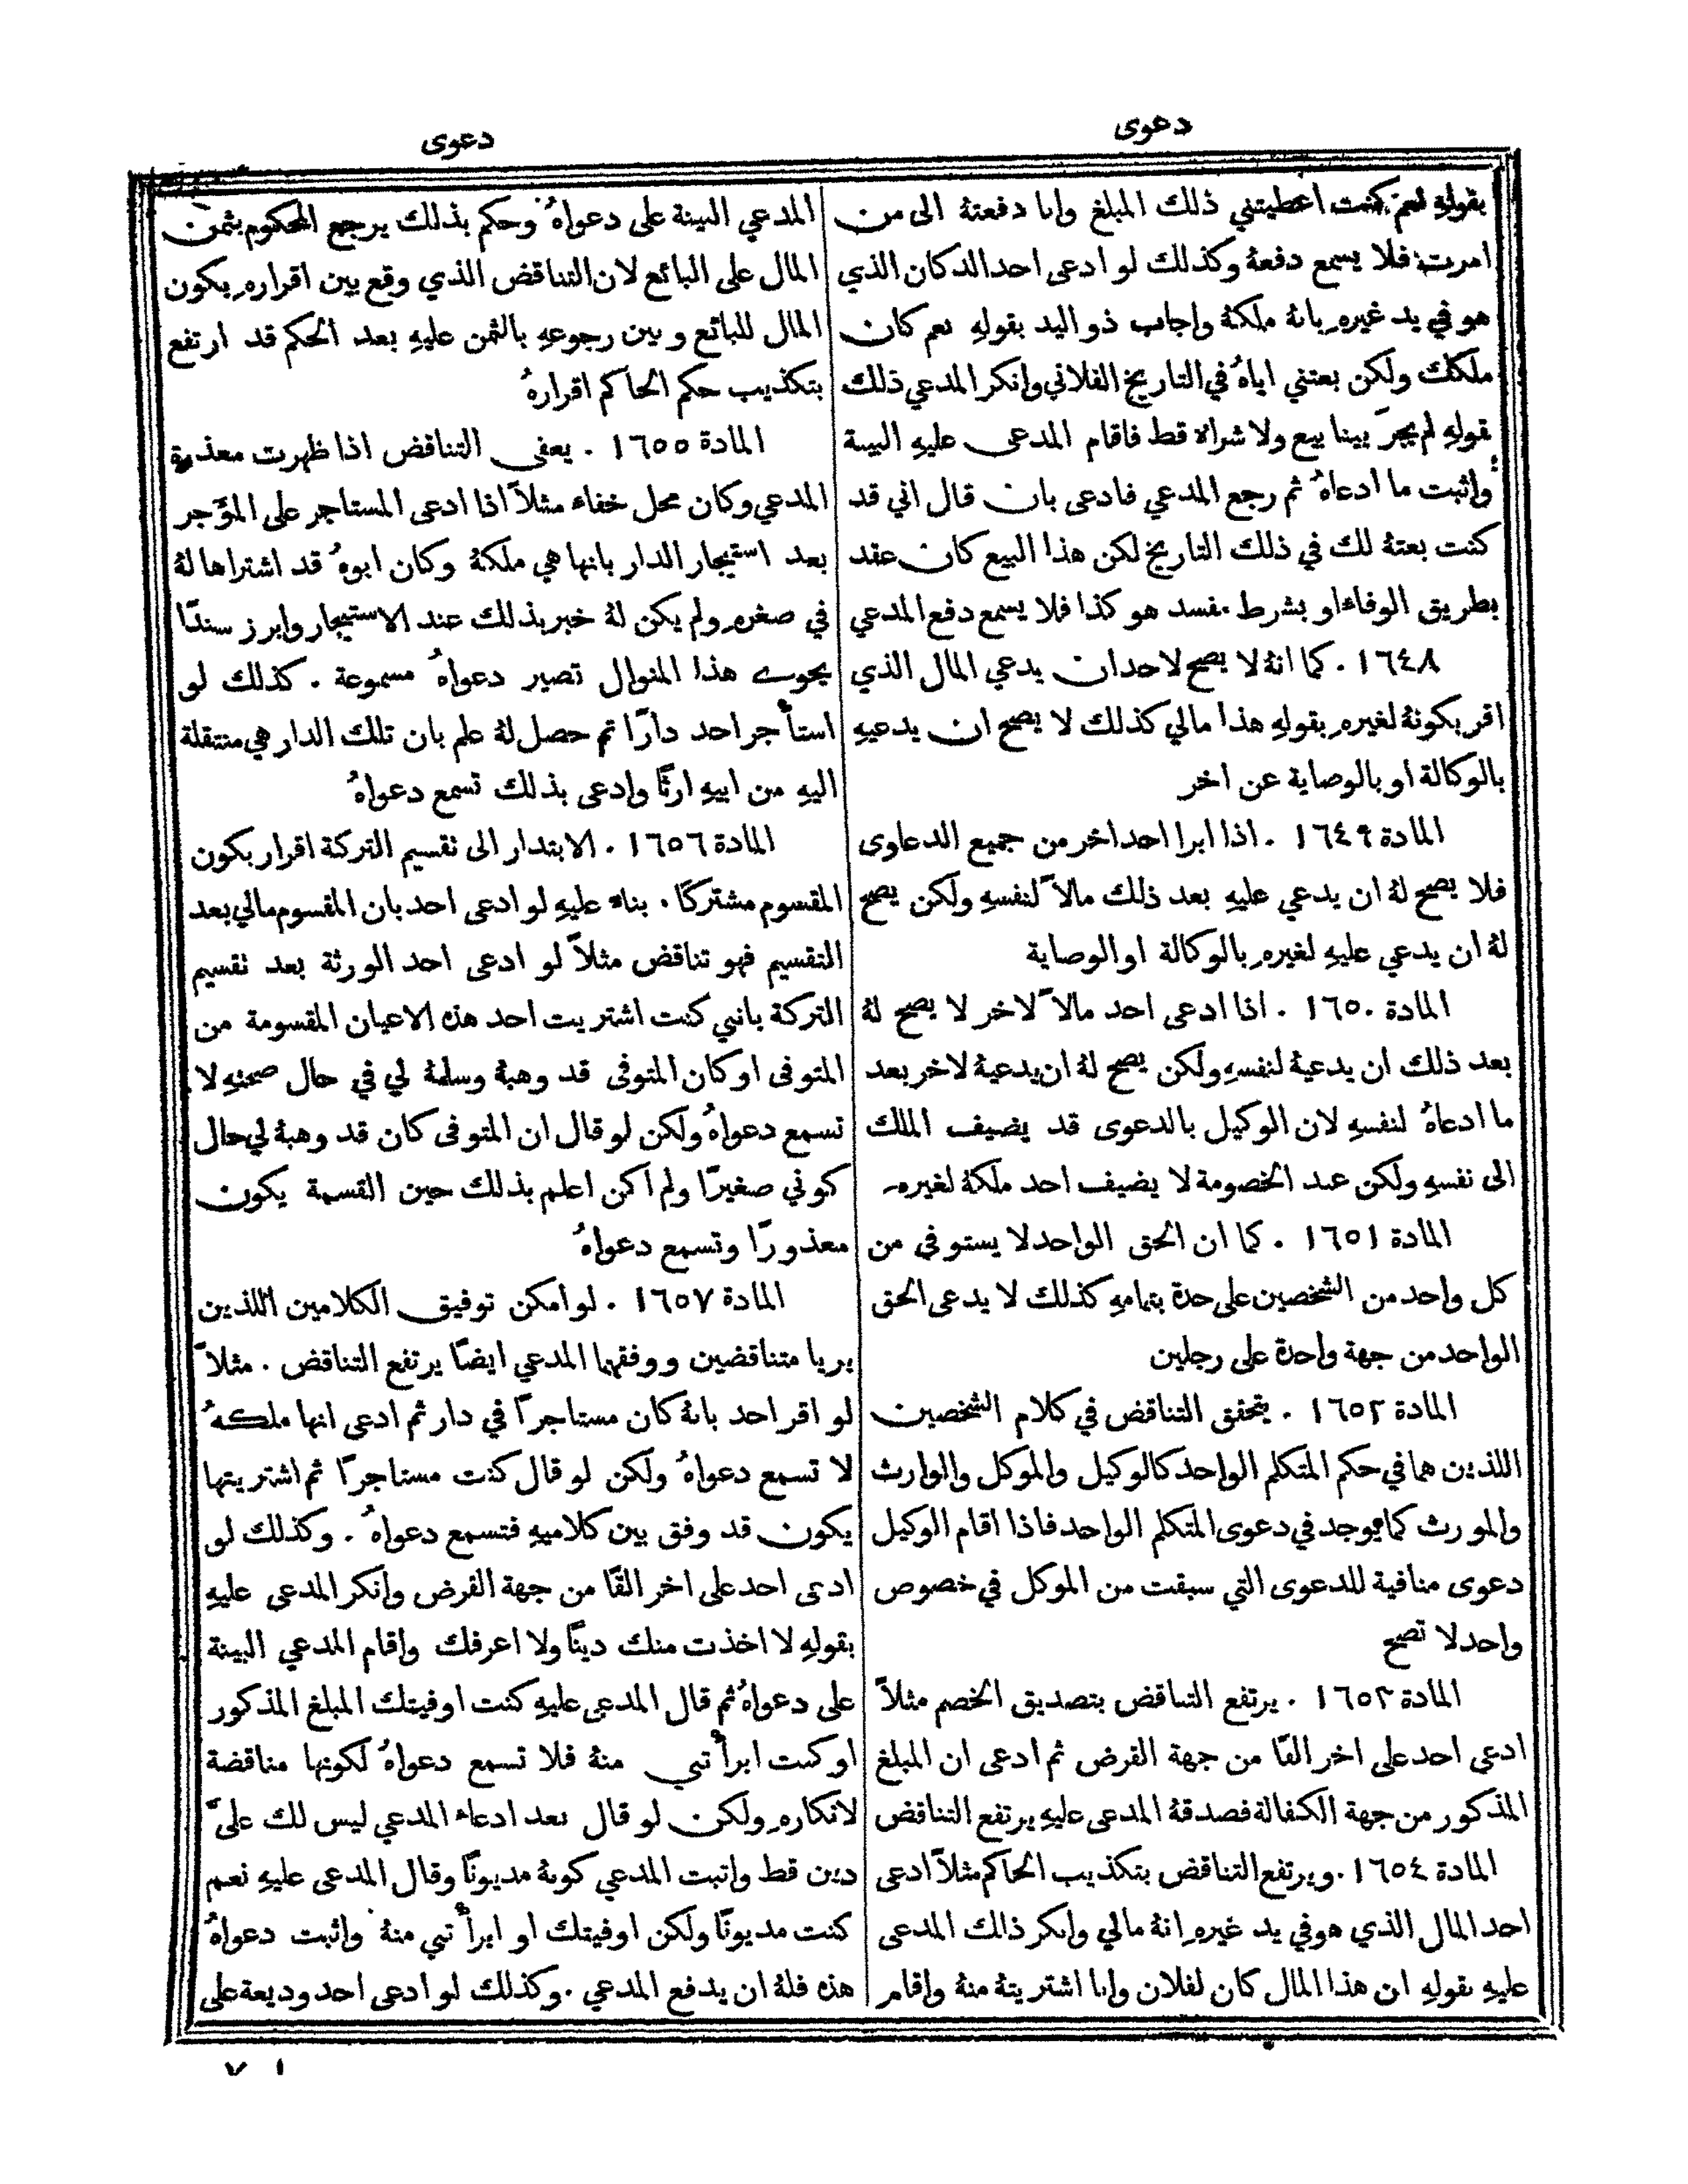 دعوى
دعوى
بقولهِ نعم كنت اعطيتني ذلك المبلغ وانا دفعتهُ الى من
امرت فلا يسمع دفعهُ وكذلك لو ادعى احد الدكان الذي
هو في يد غيرهِ بانهُ ملكهُ واجاب ذو اليد بقولهِ نعم كان
ملكك ولكن بعتني اياهُ في التاريخ الفلاني وانكر المدعي ذلك
بقولهِ لم يجرَ بيننا بيع ولا شراء قط فاقام المدعى عليهِ البينة
واثبت ما ادعاهُ ثم رجع المدعي فادعى بان قال اني قد
كنت بعتهُ لك في ذلك التاريخ لكن هذا البيع كان عقد
بطريق الوفاء او بشرط مفسد هو كذا فلا يسمع دفع المدعي
١٦٤٨ . كما انهُ لا يصح لاحد ان يدعي المال الذي
اقر بكونهُ لغيرهِ بقولهِ هذا مالي كذلك لا يصح ان يدعيهِ
بالوكالة او بالوصاية عن اخر
المادة ١٦٤٩ . اذا ابرا احد اخر من جميع الدعاوى
فلا يصح لهُ ان يدعي عليهِ بعد ذلك مالاً لنفسهِ ولكن يصح
لهُ ان يدعي عليهِ لغيرهِ بالوكالة او الوصاية
المادة ١٦٥٠ . اذا ادعى احد مالاً لاخر لا يصح لهُ
بعد ذلك ان يدعيهُ لنفسهِ ولكن يصح لهُ ان يدعيهُ لاخر بعد
ما ادعاهُ لنفسهِ لان الوكيل بالدعوى قد يضيف الملك
الى نفسهِ ولكن عند الخصومة لا يضيف احد ملكهُ لغيرهِ
المادة ١٦٥١ . كما ان الحق الواحد لا يستوفى من
كل واحد من الشخصين على حدة بتمامهِ كذلك لا يدعى الحق
الواحد من جهة واحدة على رجلين
المادة ١٦٥٢ . يتحقق التناقض في كلام الشخصين
اللذين هما في حكم المتكلم الواحد كالوكيل والموكل والوارث
والمورث كما يوجد في دعوى المتكلم الواحد فاذا اقام الوكيل
دعوى منافية للدعوى التي سبقت من الموكل في خصوص
واحد لا تصح
المادة ١٦٥٣ . يرتفع التناقض بتصديق الخصم مثلاً
ادعى احد على اخر الفًا من جهة القرض ثم ادعى ان المبلغ
المذكور من جهة الكفالة فصدقهُ المدعى عليهِ يرتفع التناقض
المادة ١٦٥٤ . ويرتفع التناقض بتكذيب الحاكم مثلاً ادعى
احد المال الذي هو في يد غيرهِ انهُ مالي وانكر ذالك المدعى
عليهِ بقولهِ ان هذا المال كان لفلان وانا اشتريتهُ منهُ واقام
المدعي البينة على دعواهُ وحكم بذلك يرجع المحكوم بثمن
المال على البائع لان التناقض الذي وقع بين اقرارهِ بكون
المال للبائع وبين رجوعهِ بالثمن عليهِ بعد الحكم قد ارتفع
بتكذيب حكم الحاكم اقرارهُ
المادة ١٦٥٥ . يعفى التناقض اذا ظهرت معذرة
المدعي وكان محل خفاء مثلاً اذا ادعى المستاجر على المؤجر
بعد استيجار الدار بانها هي ملكهُ وكان ابوهُ قد اشتراها لهُ
في صغرهِ ولم يكن لهُ خبر بذلك عند الاستيجار وابرز سندًا
يحوي هذا المنوال تصير دعواهُ مسموعة . كذلك لو
استأجر احد دارًا ثم حصل لهُ علم بان تلك الدار هي منتقلة
اليهِ من ابيهِ ارثًا وادعى بذلك تسمع دعواهُ
المادة ١٦٥٦ . الابتدار الى تقسيم التركة اقرار بكون
المقسوم مشتركًا . بناء عليهِ لو ادعى احد بان المقسوم مالي بعد
التقسيم فهو تناقض مثلاً لو ادعى احد الورثة بعد تقسيم
التركة بانني كنت اشتريت احد هذه الاعيان المقسومة من
المتوفى او كان المتوفى قد وهبهُ وسلمهُ لي في حال صحتهِ لا
تسمع دعواهُ ولكن لو قال ان المتوفى كان قد وهبهُ لي حال
كوني صغيرًا ولم اكن اعلم بذلك حين القسمة يكون
معذورًا وتسمع دعواهُ
المادة ١٦٥٧ . لو امكن توفيق الكلامين اللذين
يريا متناقضين ووفقهما المدعي ايضًا يرتفع التناقض . مثلاً
لو اقر احد بانهُ كان مستاجرًا في دار ثم ادعى انها ملكهُ
لا تسمع دعواهُ ولكن لو قال كنت مستاجرًا ثم اشتريتها
يكون قد وفق بين كلاميهِ فتسمع دعواهُ . وكذلك لو
ادعى احد على اخر الفًا من جهة القرض وانكر المدعى عليهِ
بقولهِ لا اخذت منك دينًا ولا اعرفك واقام المدعي البينة
على دعواهُ ثم قال المدعى عليهِ كنت اوفيتك المبلغ المذكور
او كنت ابرأتني منهُ فلا تسمع دعواهُ لكونها مناقضة
لانكارهِ ولكن لو قال بعد ادعاء المدعي ليس لك عليَّ
دين قط واثبت المدعي كونهُ مديونًا وقال المدعى عليهِ نعم
كنت مديونًا ولكن اوفيتك او ابرأتني منهُ واثبت دعواهُ
هذه فلهُ ان يدفع المدعي . وكذلك لو ادعى احد وديعة على
٧١